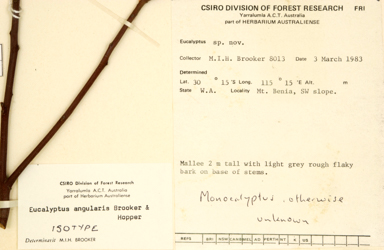 CSIRO DIVISION OF FOREST RESEARCH FRI
Yarralumla A.C.T. Australia
part of HERBARIUM AUSTRALIENSE
Eucalyptus sp. nov.
Collector M.I.H. Brooker 8013 Date 3 March 1983
Determined
Lat. 30 ° 15 'S Long. 115 ° 15 'E Alt. m
State W.A. Locality Mt. Benia, SW slope.
Mallee 2 m tall with light grey rough flaky
bark on base of stems.
Monocalyptus. otherwise
unknown
CSIRO Division of Forest Research
Yarralumla A.C.T. Australia
part of Herbarium Australiense
Eucalyptus angularis Brooker &
Hopper
ISOTYPE
Determinavit M.I.H. BROOKER